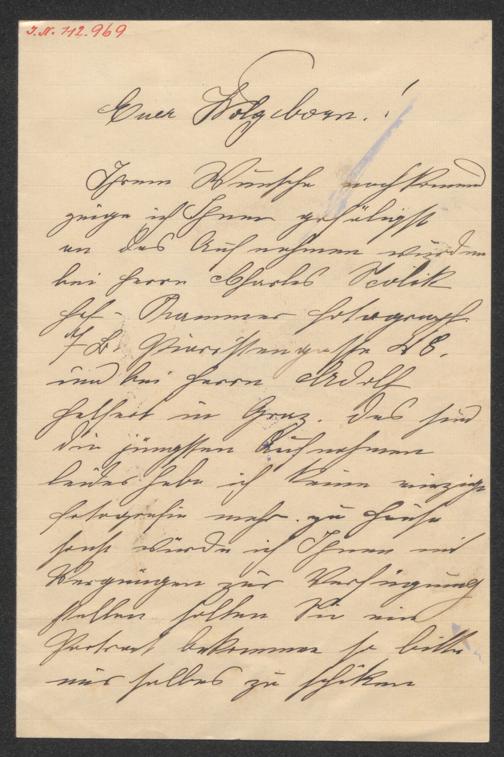 J.N. 112.969
Euer Wolgeborn.!
Ihrem Wunsche nachkomend
zeige ich Ihnen gefäligst
an das Aufnehmen wurden
bei Herrn Charles Scolik
Hof-Kammer Fotograph
Piaristengasse 48.
und bei Herrn Adolf
Helfert in Graz. das sind
die jüngsten Aufnehmen
leider habe ich keine einzige
Fotografie mehr. zu Hause
sonst würde ich Ihnen mit
Vergnügen zur Verfügung
stellen solten Sie ein
Portrait bekommen so bitte
mir selbes zu schiken